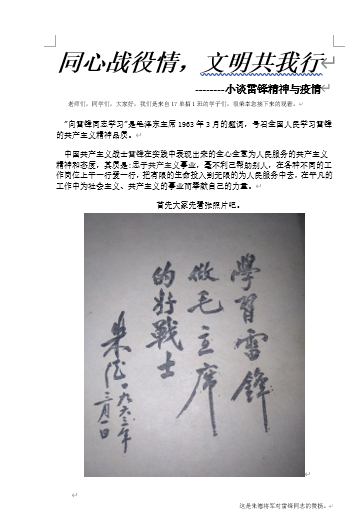 同心战役情，文明共我行
--------小谈雷锋精神与疫情
老师们，同学们，大家好，我们是来自17单招1班的学子们，很荣幸您接下来的观看。
“向雷锋同志学习”是毛泽东主席1963年3月的题词，号召全国人民学习雷锋
的共产主义精神品质。
中国共产主义战士雷锋在实践中表现出来的全心全意为人民服务的共产主义
精神和态度，其实质是:忠于共产主义事业，毫不利己帮助别人，在各种不同的工
作岗位上干一行爱一行，把有限的生命投入到无限的为人民服务中去，在平凡的
工作中为社会主义、共产主义的事业而奉献自己的力量。
首先大家先看张照片吧。
學習雷鋒
做毛主席
的好戰士
朱德
一九六三年
三月一日
这是朱德将军对雷锋同志的赞扬。